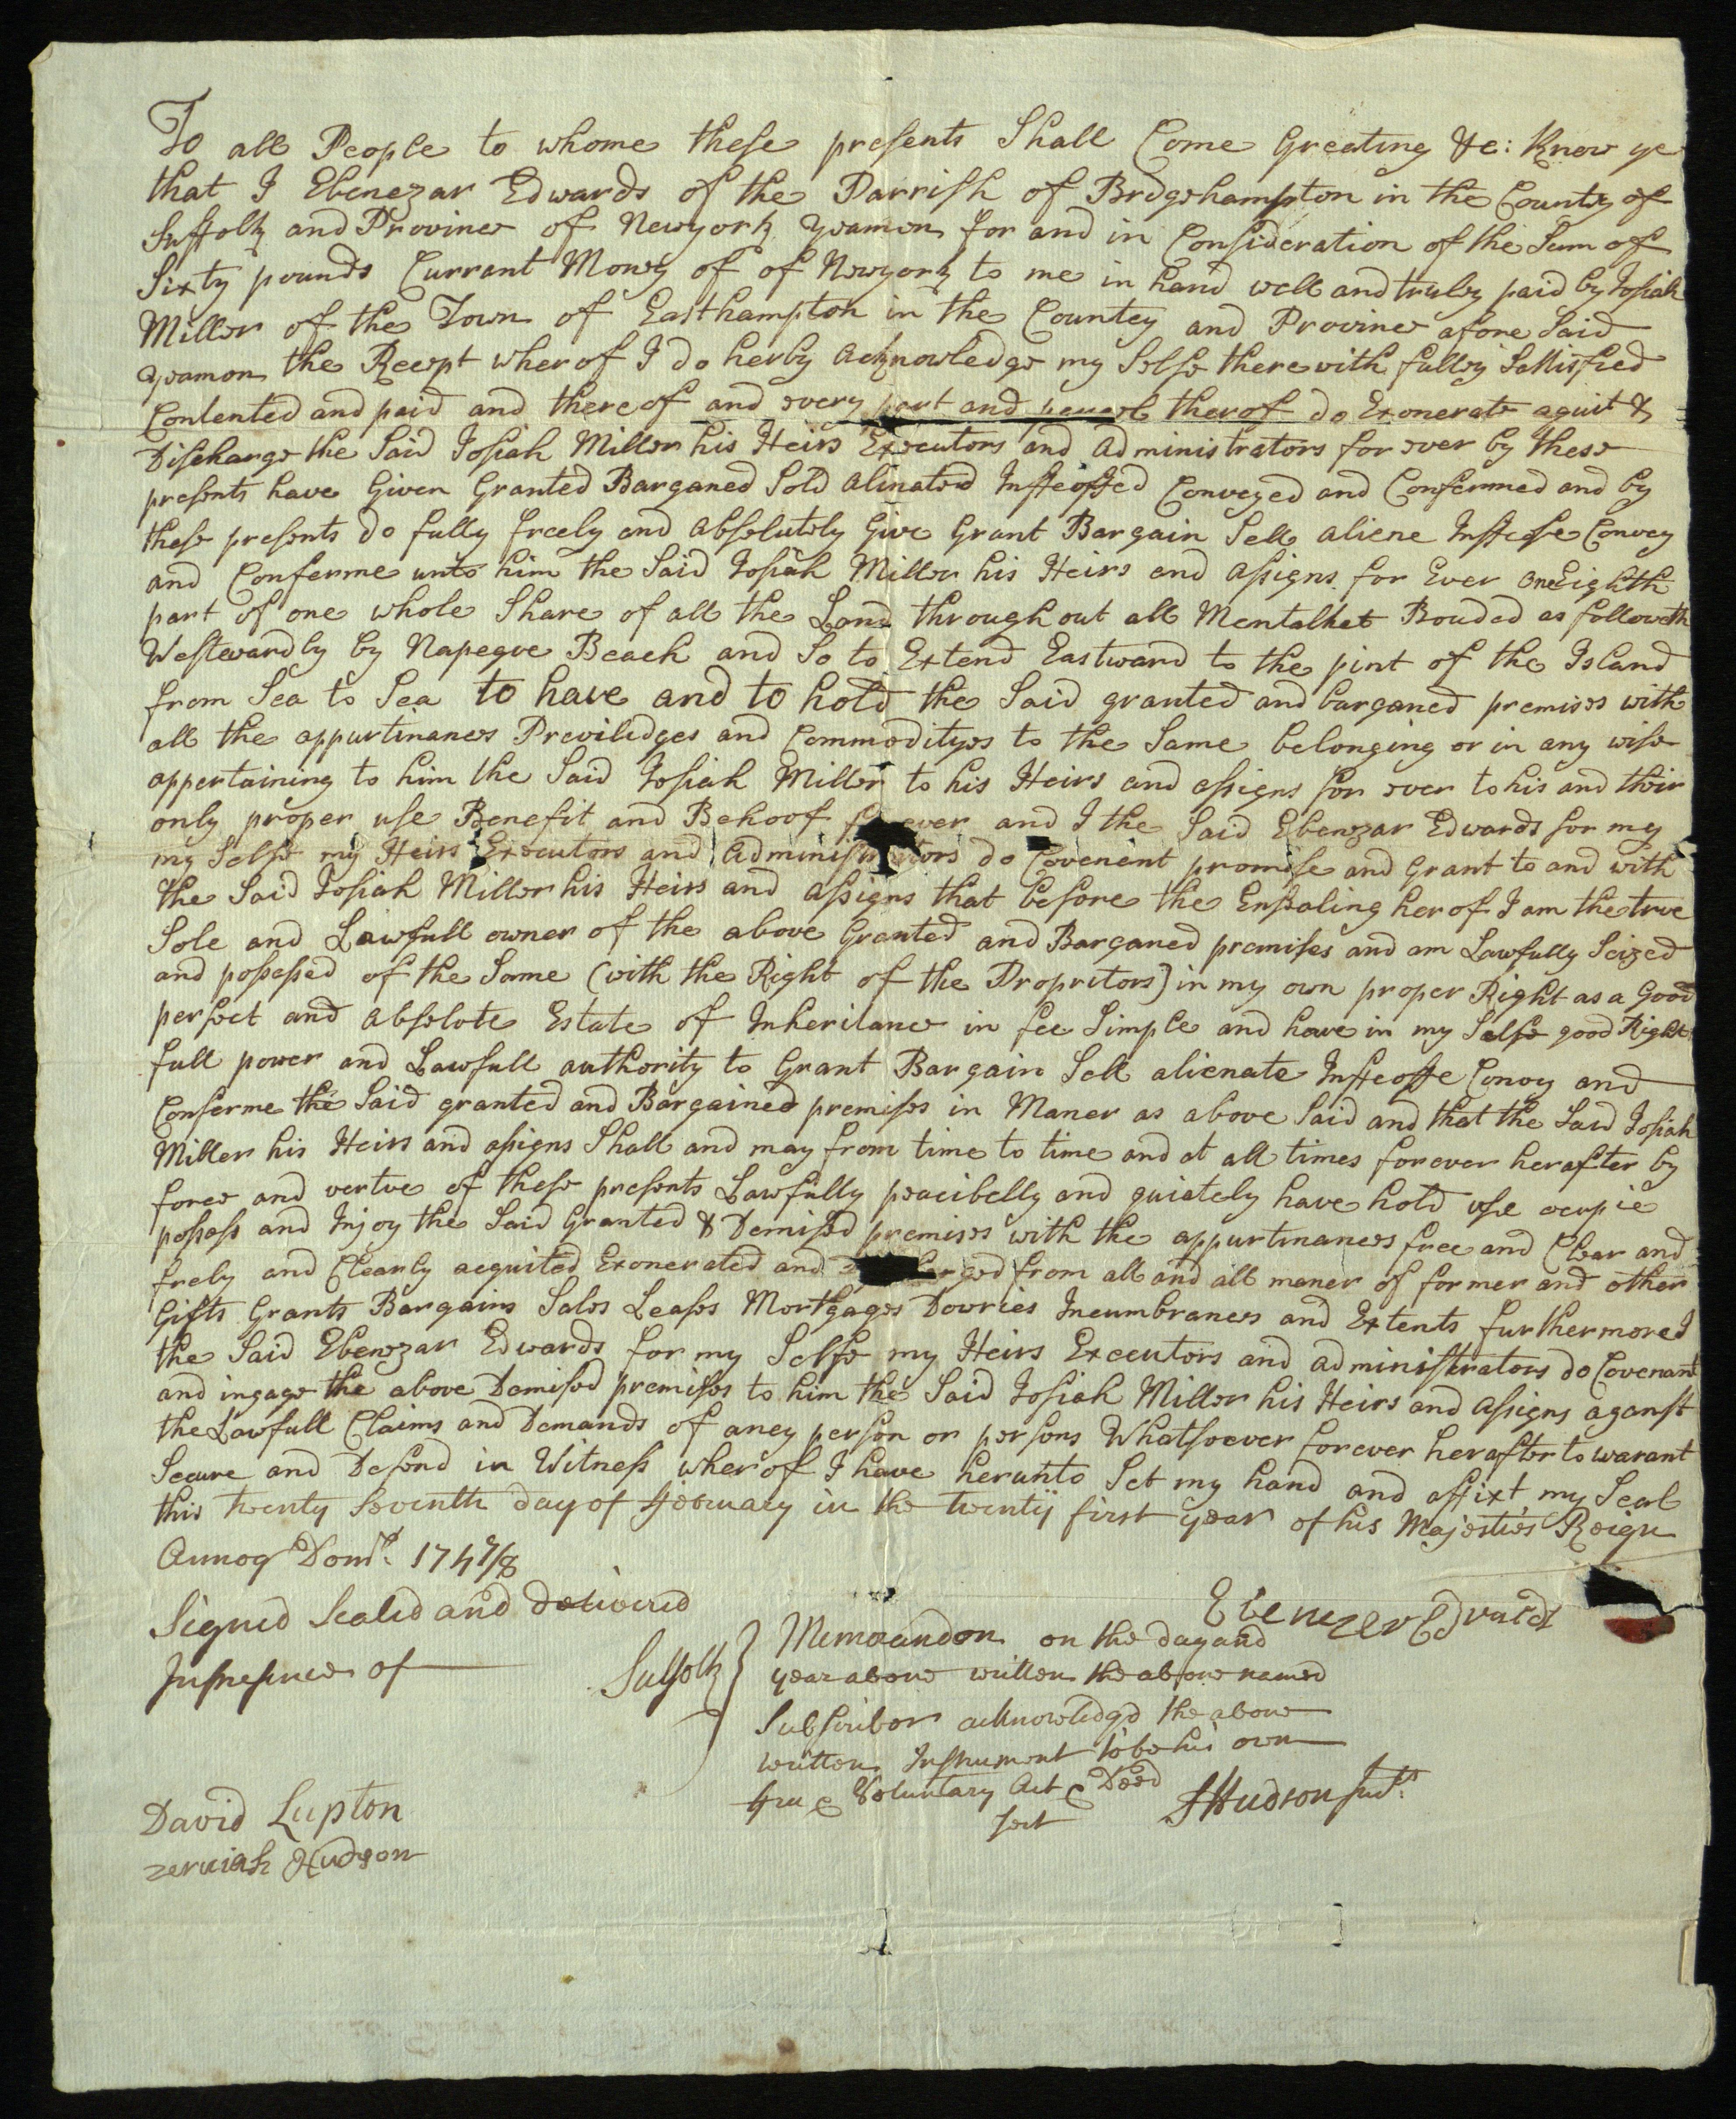 To all People to whome these presents Shall Come Greating &c: Know ye
that I Ebenezar Edwards of the Parrish of Bridgehampton in the County of
Suffolk and Province of Newyork yeamon for and in Consideration of the Sum of
Sixty pounds Currant Money of of Newyork to me in hand well and truley paid by Josiah
Miller of the Town of Easthampton in the Countey and Province afore Said
yeamon the Recept wherof I do herby acknowledge my Selfe therewith fulley Sattisfied
Contented and paid and thereof and every part and thereof do Exonerate aquit &
Discharge the Said Josiah Miller his Heirs Executors and administrators for ever by these
presents have Given Granted Barganed Sold alinated Infeoffed Conveyed and Confermed and by
these presents do fully freely and absolutely Give Grant Bargain Sell aliene Infeofe Convey
and Conferme unto him the Said Josiah Miller his Heirs and assigns for Ever one Eighth
part of one whole Share of all the Land throughout all Mentalket Bouded as followeth
Westewardly by Napegue Beach and So to Extend Eastward to the pint of the Island
from Sea to Sea to have and to hold the Said granted and barganed premises with
all the appurtinances Previlidges and Commodityes to the Same belonging or in any wise
appertaining to him the Said Josiah Miller to his Heirs and assigns for ever to his and their
only proper use Benefit and Behoof ever and I the Said Ebenezar Edwards for my
my Selfe my Heirs Executors and administrators do Covenent promise and Grant to and with
the Said Josiah Miller his Heirs and assigns that before the Ensealing herof I am the true
Sole and Lawfull owner of the above Granted and Barganed premises and am Lawfully Seized
and possessed of the Same (with the Right of the Propritors) in my own proper Right as a Good
perfect and absolote Estate of Inheritance in fee Simple and have in my Selfe good Right
full power and Lawfull authority to Grant Bargain Sell alienate Infeoffe Convey and
Conferme the Said granted and Bargained premises in Maner as above Said and that the Said Josiah
Miller his Heirs and assigns Shall and may from time to time and at all times forever herafter by
force and vertue of these presents Lawfully peacibelly and quiately have hold use ocupie
possess and Injoy the Said Granted & Demised premises with the appurtinances free and Clear and
frely and Clearly acquited Exonerated and from all and all maner of former and other
Gifts Grants Bargains Sales Leases Mortgages Dowries Incumbrances and Extents furthermore I
the Said Ebenezar Edwards for my Selfe my Heirs Executors and administrators do Covenant
and ingage the above Demised premises to him the Said Josiah Miller his Heirs and assigns aganst
the Lawfull Claims and Demands of aney person or persons Whatsoever forever herafter to warant
Secure and Defend in Witness wherof I have herunto Set my hand and affixt my Seal
this twenty Seventh day of February in the twenty first year of his Majesties Reign
Annoq Domi. 1747/8
Signed Sealed and delivered
In presence of
Ebenezer Edwards
Suffolk } Memorandom on the day and
year above written the above named
Subscriber acknowledged the above
written Instrument to be his own
free & Voluntary Act & Deed
Test
J Hudson Just.
David Lupton
zeruiah Hudson